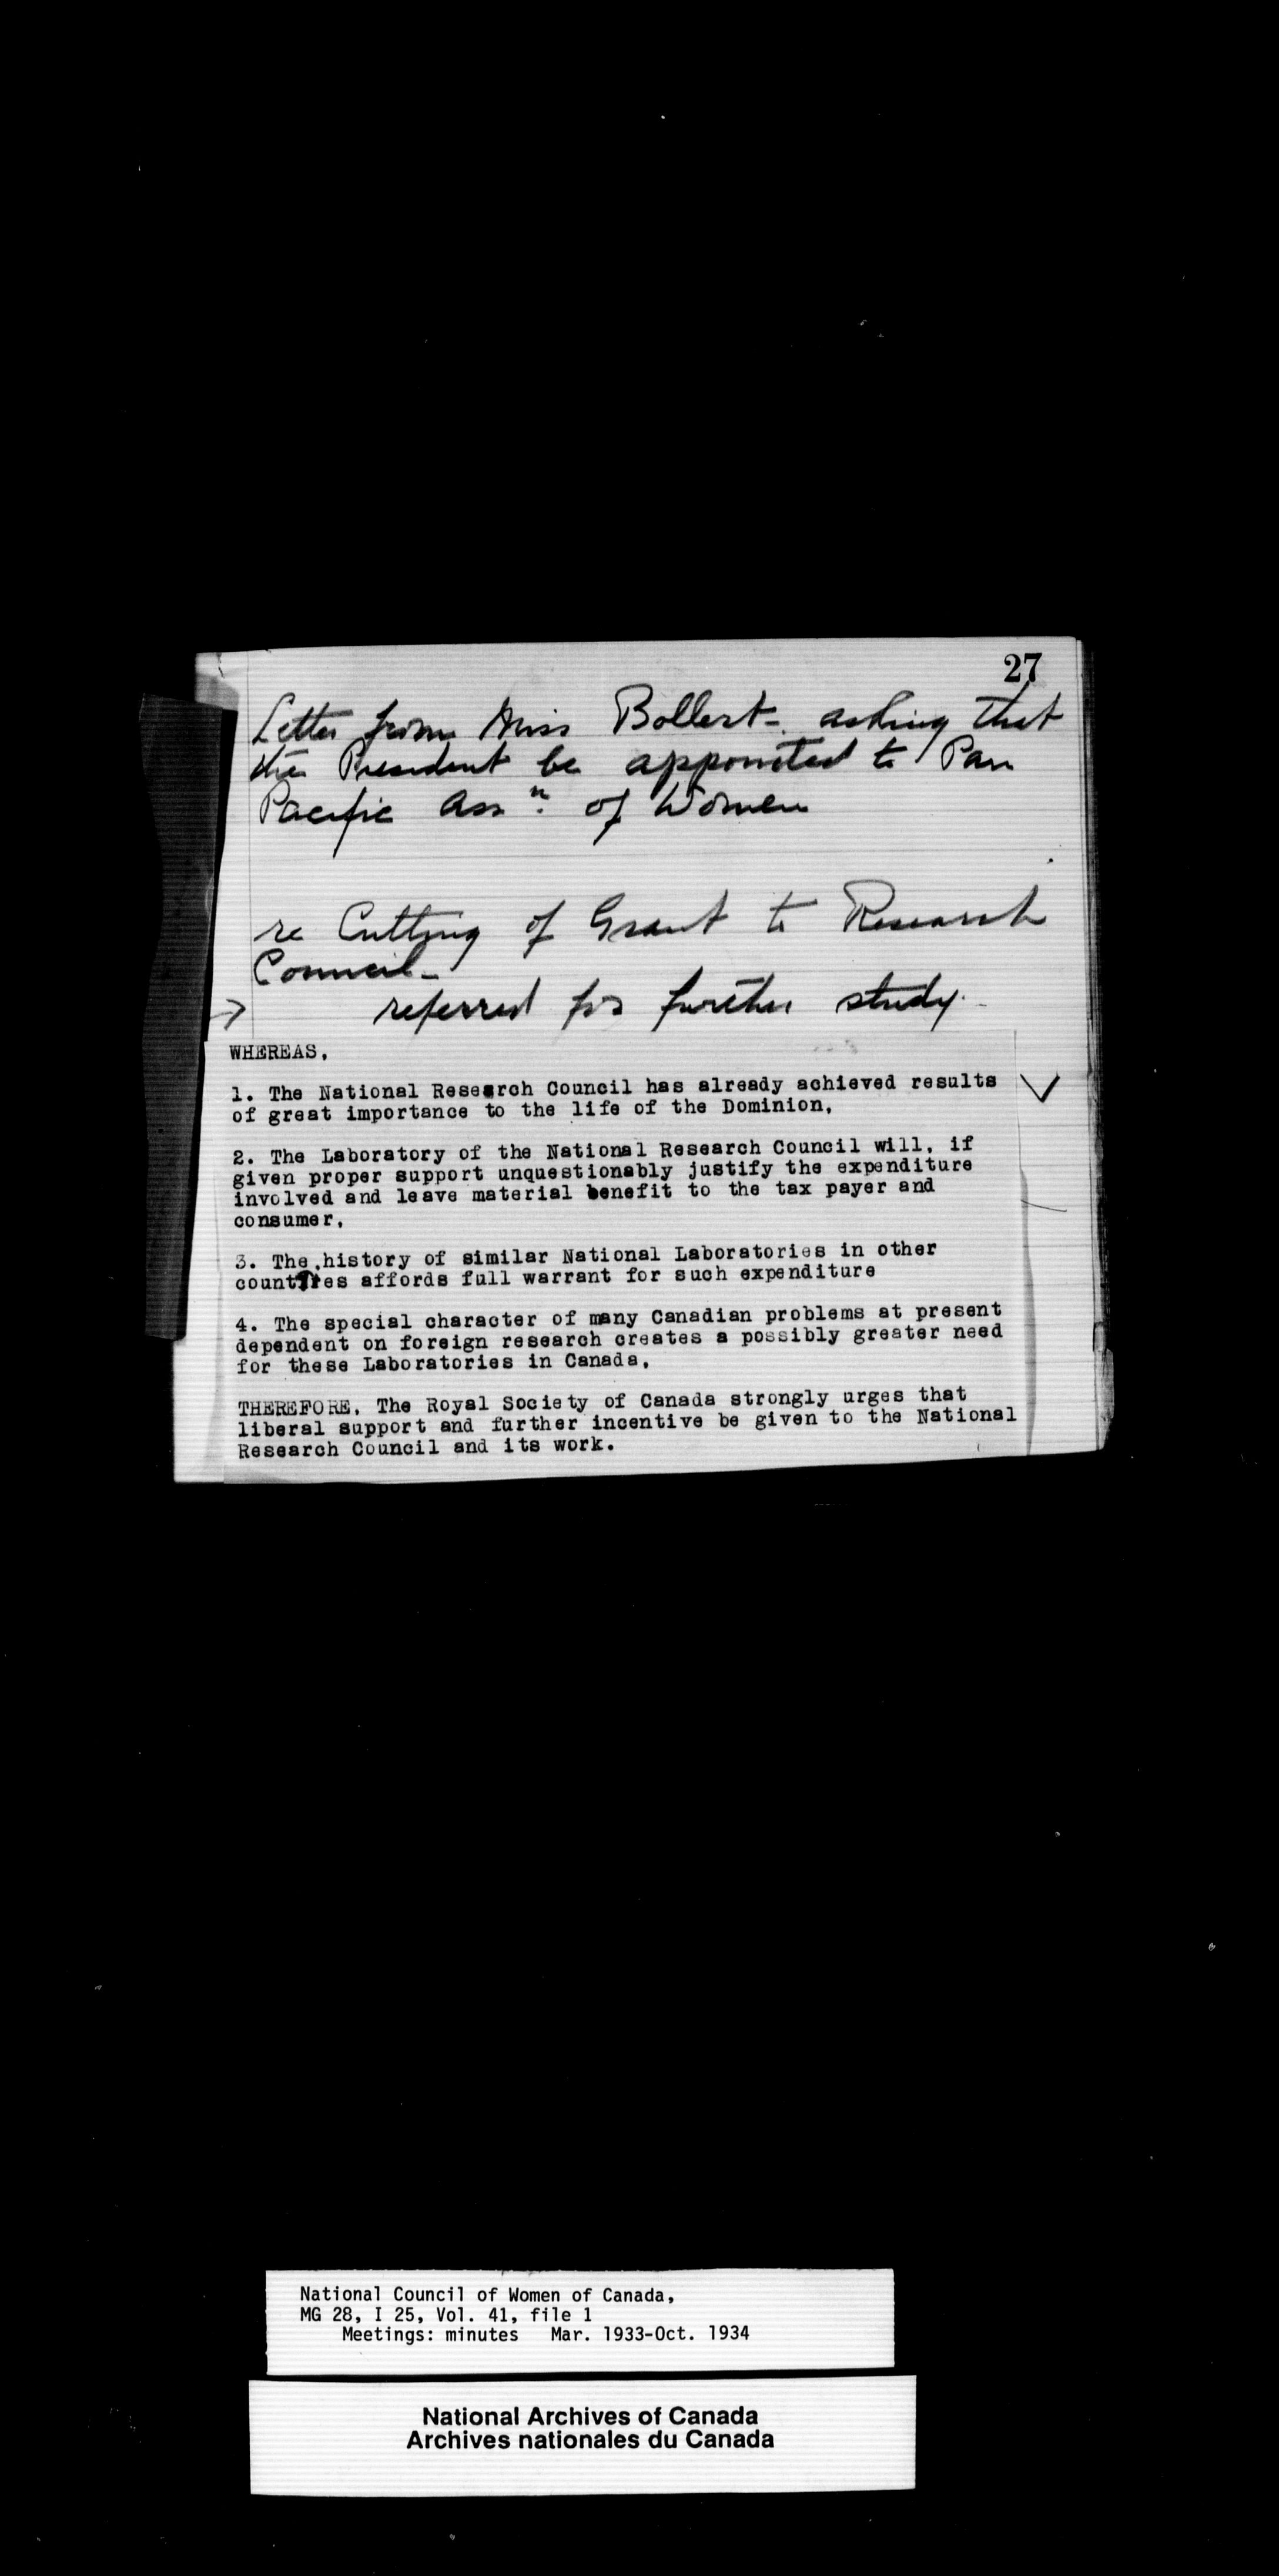 27
Letter from Miss Bollert - asking that
the President be appointed to Pan
Pacific Assn. of Women
re Cutting of Grant to Research
Council -
referred for further study -
WHEREAS,
1. The National Research Council has already achieved results
of great importance to the life of the Dominion,
2. The Laboratory of the National Research Council will, if
given proper support unquestionably justify the expenditure
involved and leave material benefit to the tax payer and
consumer,
3. The history of similar National Laboratories in other
countries affords full warrant for such expenditure
4. The special character of many Canadian problems at present
dependent on foreign research creates a possibly greater need
for these Laboratories in Canada,
THEREFORE, The Royal Society of Canada strongly urges that
liberal support and further incentive be given to the National
Research Council and its work.
National Council of Women of Canada,
MG 28, I 25, Vol. 41, file 1
Meetings: minutes Mar. 1933-Oct. 1934
National Archives of Canada
Archives nationales du Canada